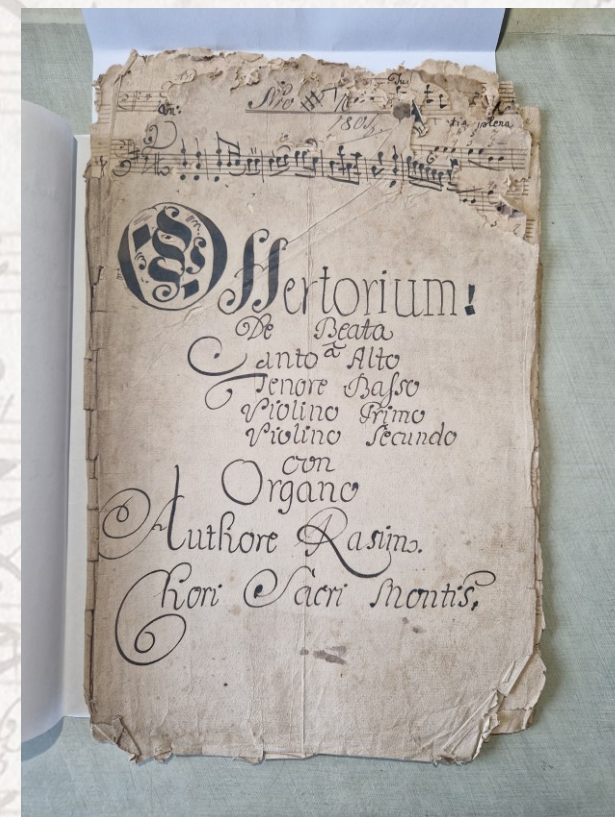 Nro
tia plena
Offertorium!
De Beata
a
Canto Alto
Tenore Basso
Violino Primo
Violino Secundo
con
Organo
Authore Rasim.
Chori Sacri Montis.